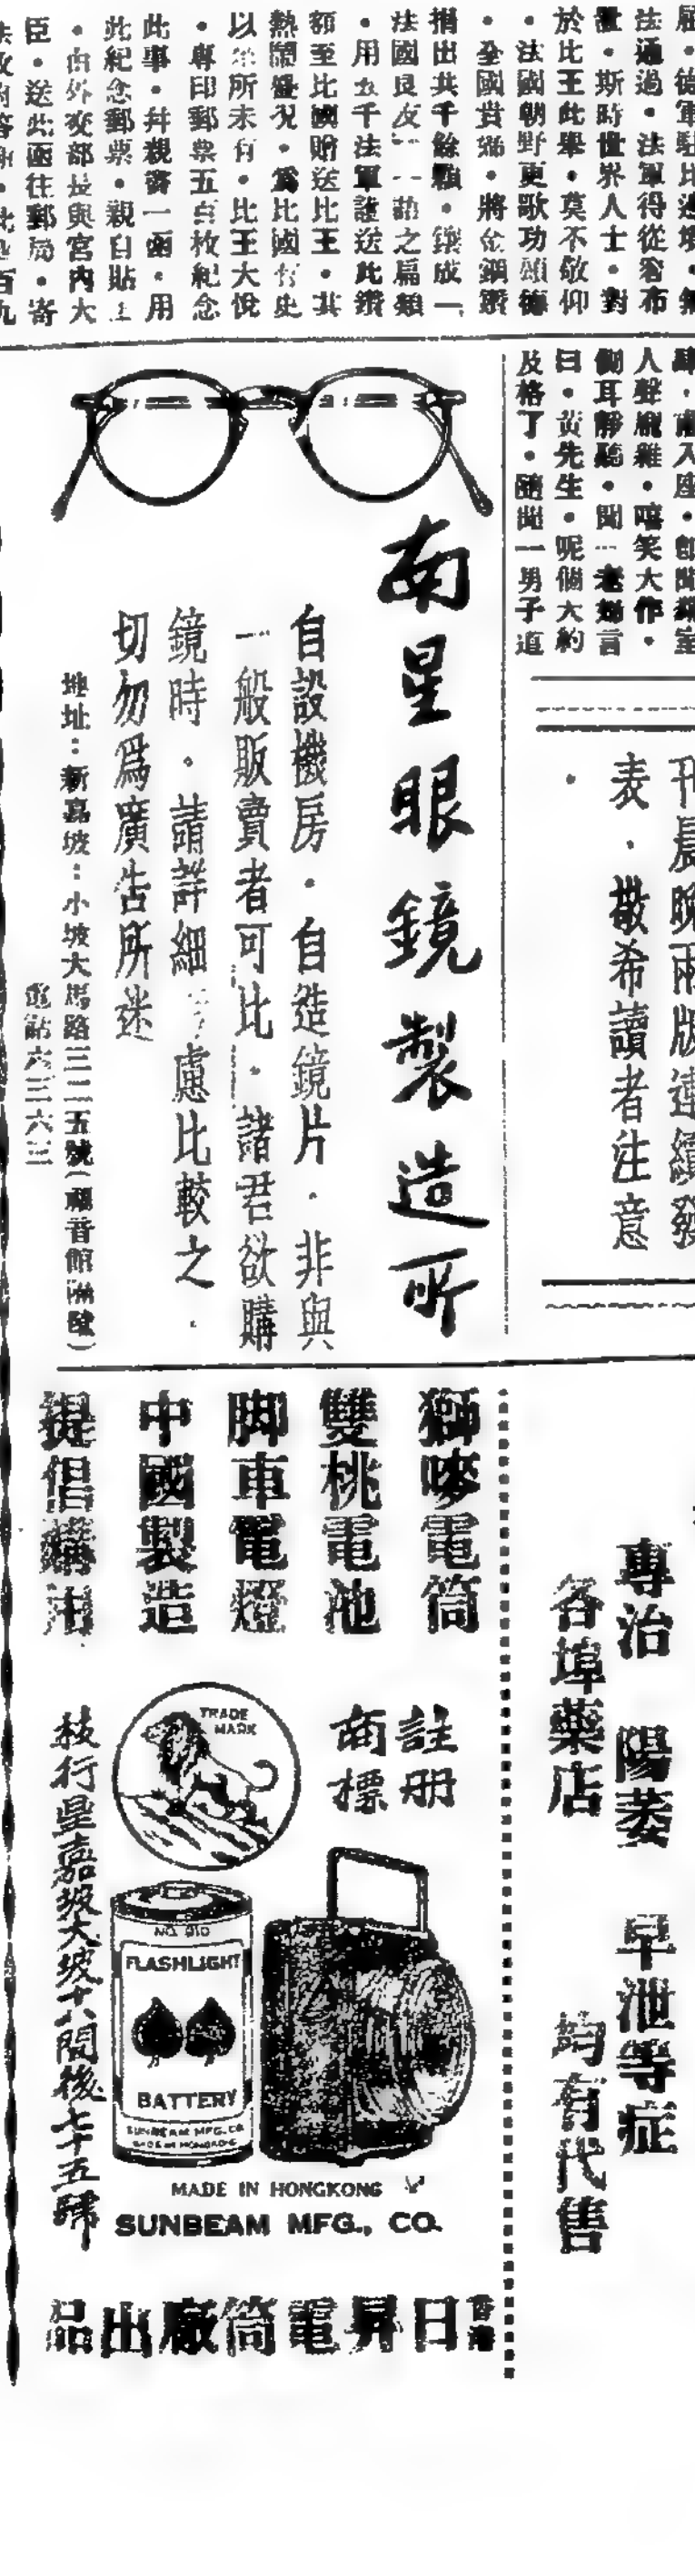 法通過・法軍得從容布
・斯時世界人士・對
於比王此舉・莫不敬仰
・法國朝野更歌功頌德
・全國貴婦・將金鋼鑽
捐出共千餘顆・鑲成一
用五千法軍護送此鑽
額至比國贈送比王・其
熱鬧盛况・為比國有史
以來所未有・比王大悅
・專印郵票五百枚紀念
此事・幷親書一函・用
此紀念郵票・親自貼上
・由外交部長與宮內大
臣・送此函往郵局・寄
人聲・嘻笑大作・
側耳靜聽・聞一老婦言
曰・黃先生・呢個大約
及格了・隨聞一男子道
刊晨晚兩版連續發
表・敬希讀者注意
・
南星眼鏡製造所
自設機房・自造鏡片・非與
一般販賣者可比・諸君欲購
鏡時・請詳細 慮比較之・
切勿爲廣告所迷
地址：新嘉坡：小坡大馬路三二五號（福音館隔鄰）
電話六三六三
專治 陽萎 早泄等症
各埠藥店 均有代售
獅嘜電筒
雙桃電池
脚車電燈
中國製造
提倡購用
註册
商標
TRADE
MARK
NO. 910
FLASHLIGHT
BATTERY
SUNBEAM MFG. CO.
MADE IN HONGKONG
MADE IN HONGKONG
SUNBEAM MFG., CO.
枝行星嘉坡大坡十八間後七十五號
香港日昇電筒廠出品